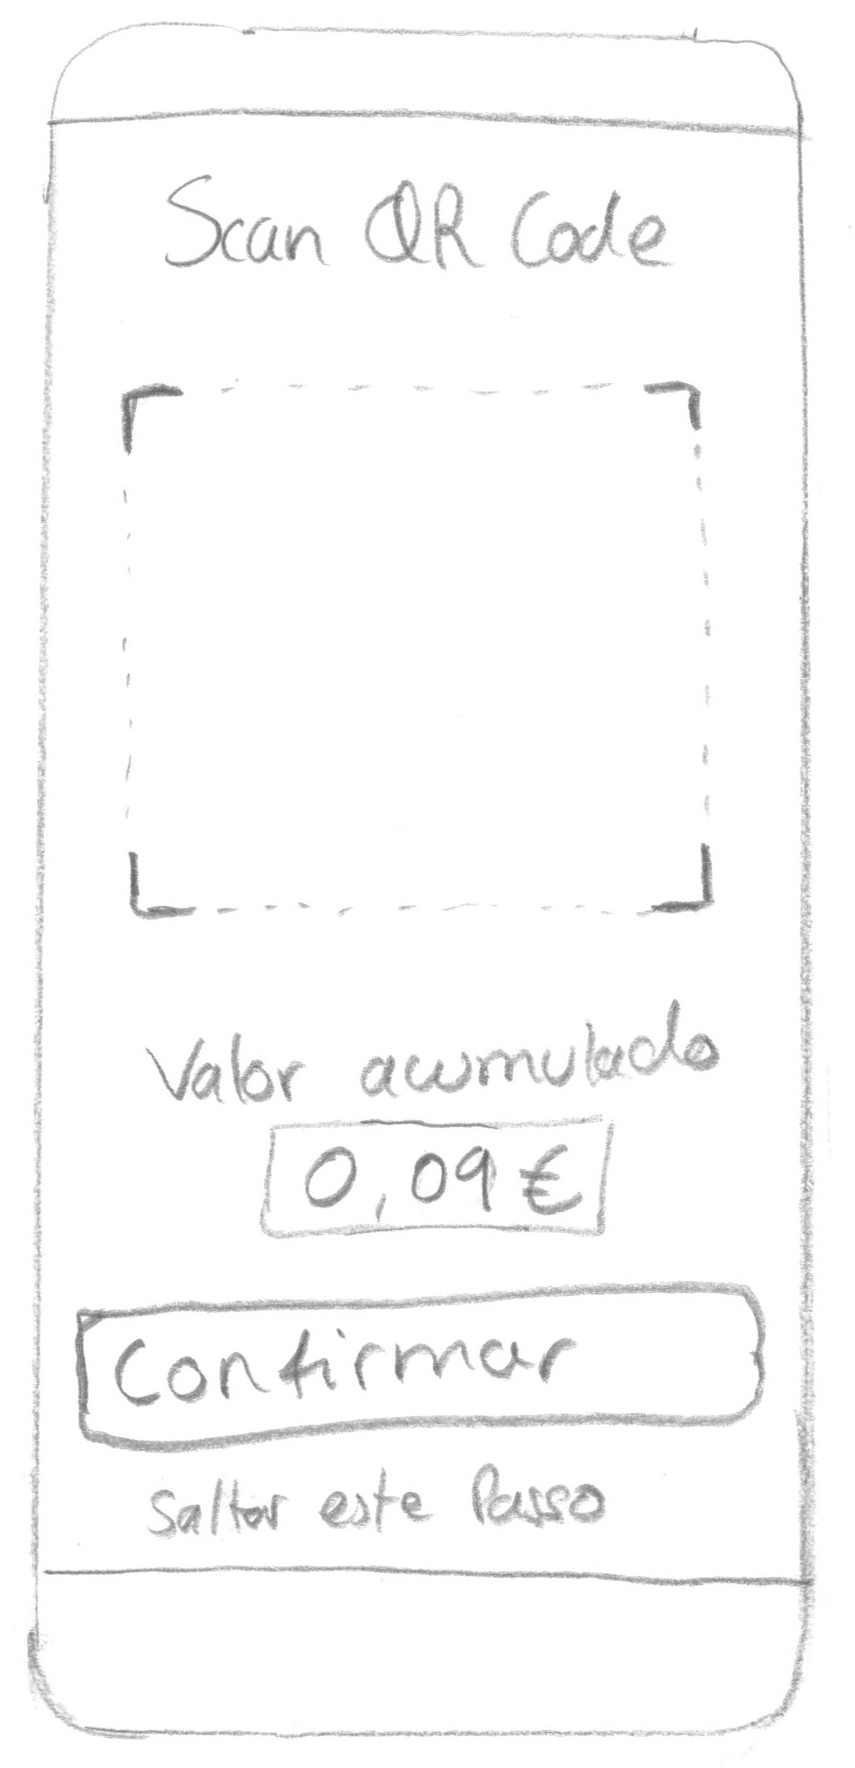 Scan QR Code
Valor acumulado
0,09€
Confirmar
Saltar este Passo